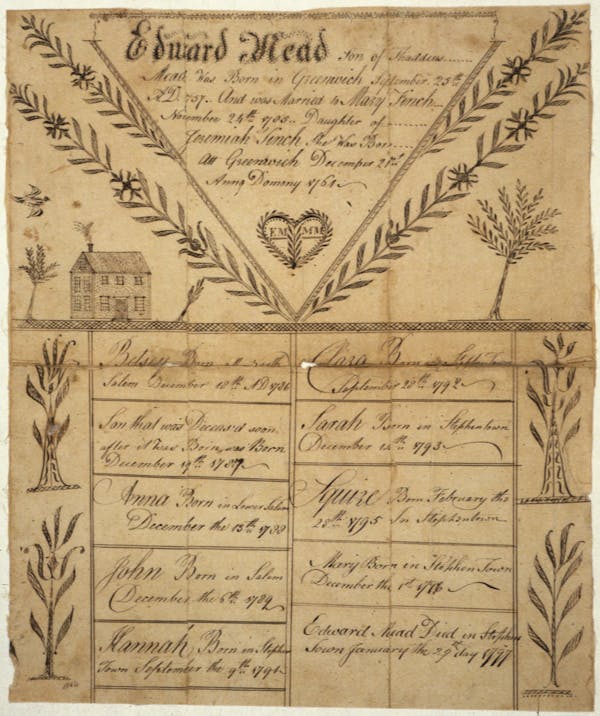 Edward Mead Son of Thaddeus
Mead Was Born in Greenwich September 25th
AD 757 And was Married to Mary Finch
November 24th 1785 Daughter of
Jeremiah Finch She Was Born
Att Greenwich December 21st
Anno Domony 1761
EM MM
Betsey Born in North
Salem December 18th AD 1786
Son that was Deceas'd soon
after it Was Born was Born
December 19th 1787
Anna Born in Lower Salem
December the 13th 1788
John Born in Salem
December the 6th 1789
Hannah Born in Stephen
Town September the 9th 1791
Clara Born in Town
September 28th 1792
Sarah Born in Stephentown
December 14th 1793
Squire Born February the
28th 1795 In Stephentown
Mary Born in Stephen Town
December the 1st 1796
Edward Mead Died in Stephen
Town January the 29th day 1797